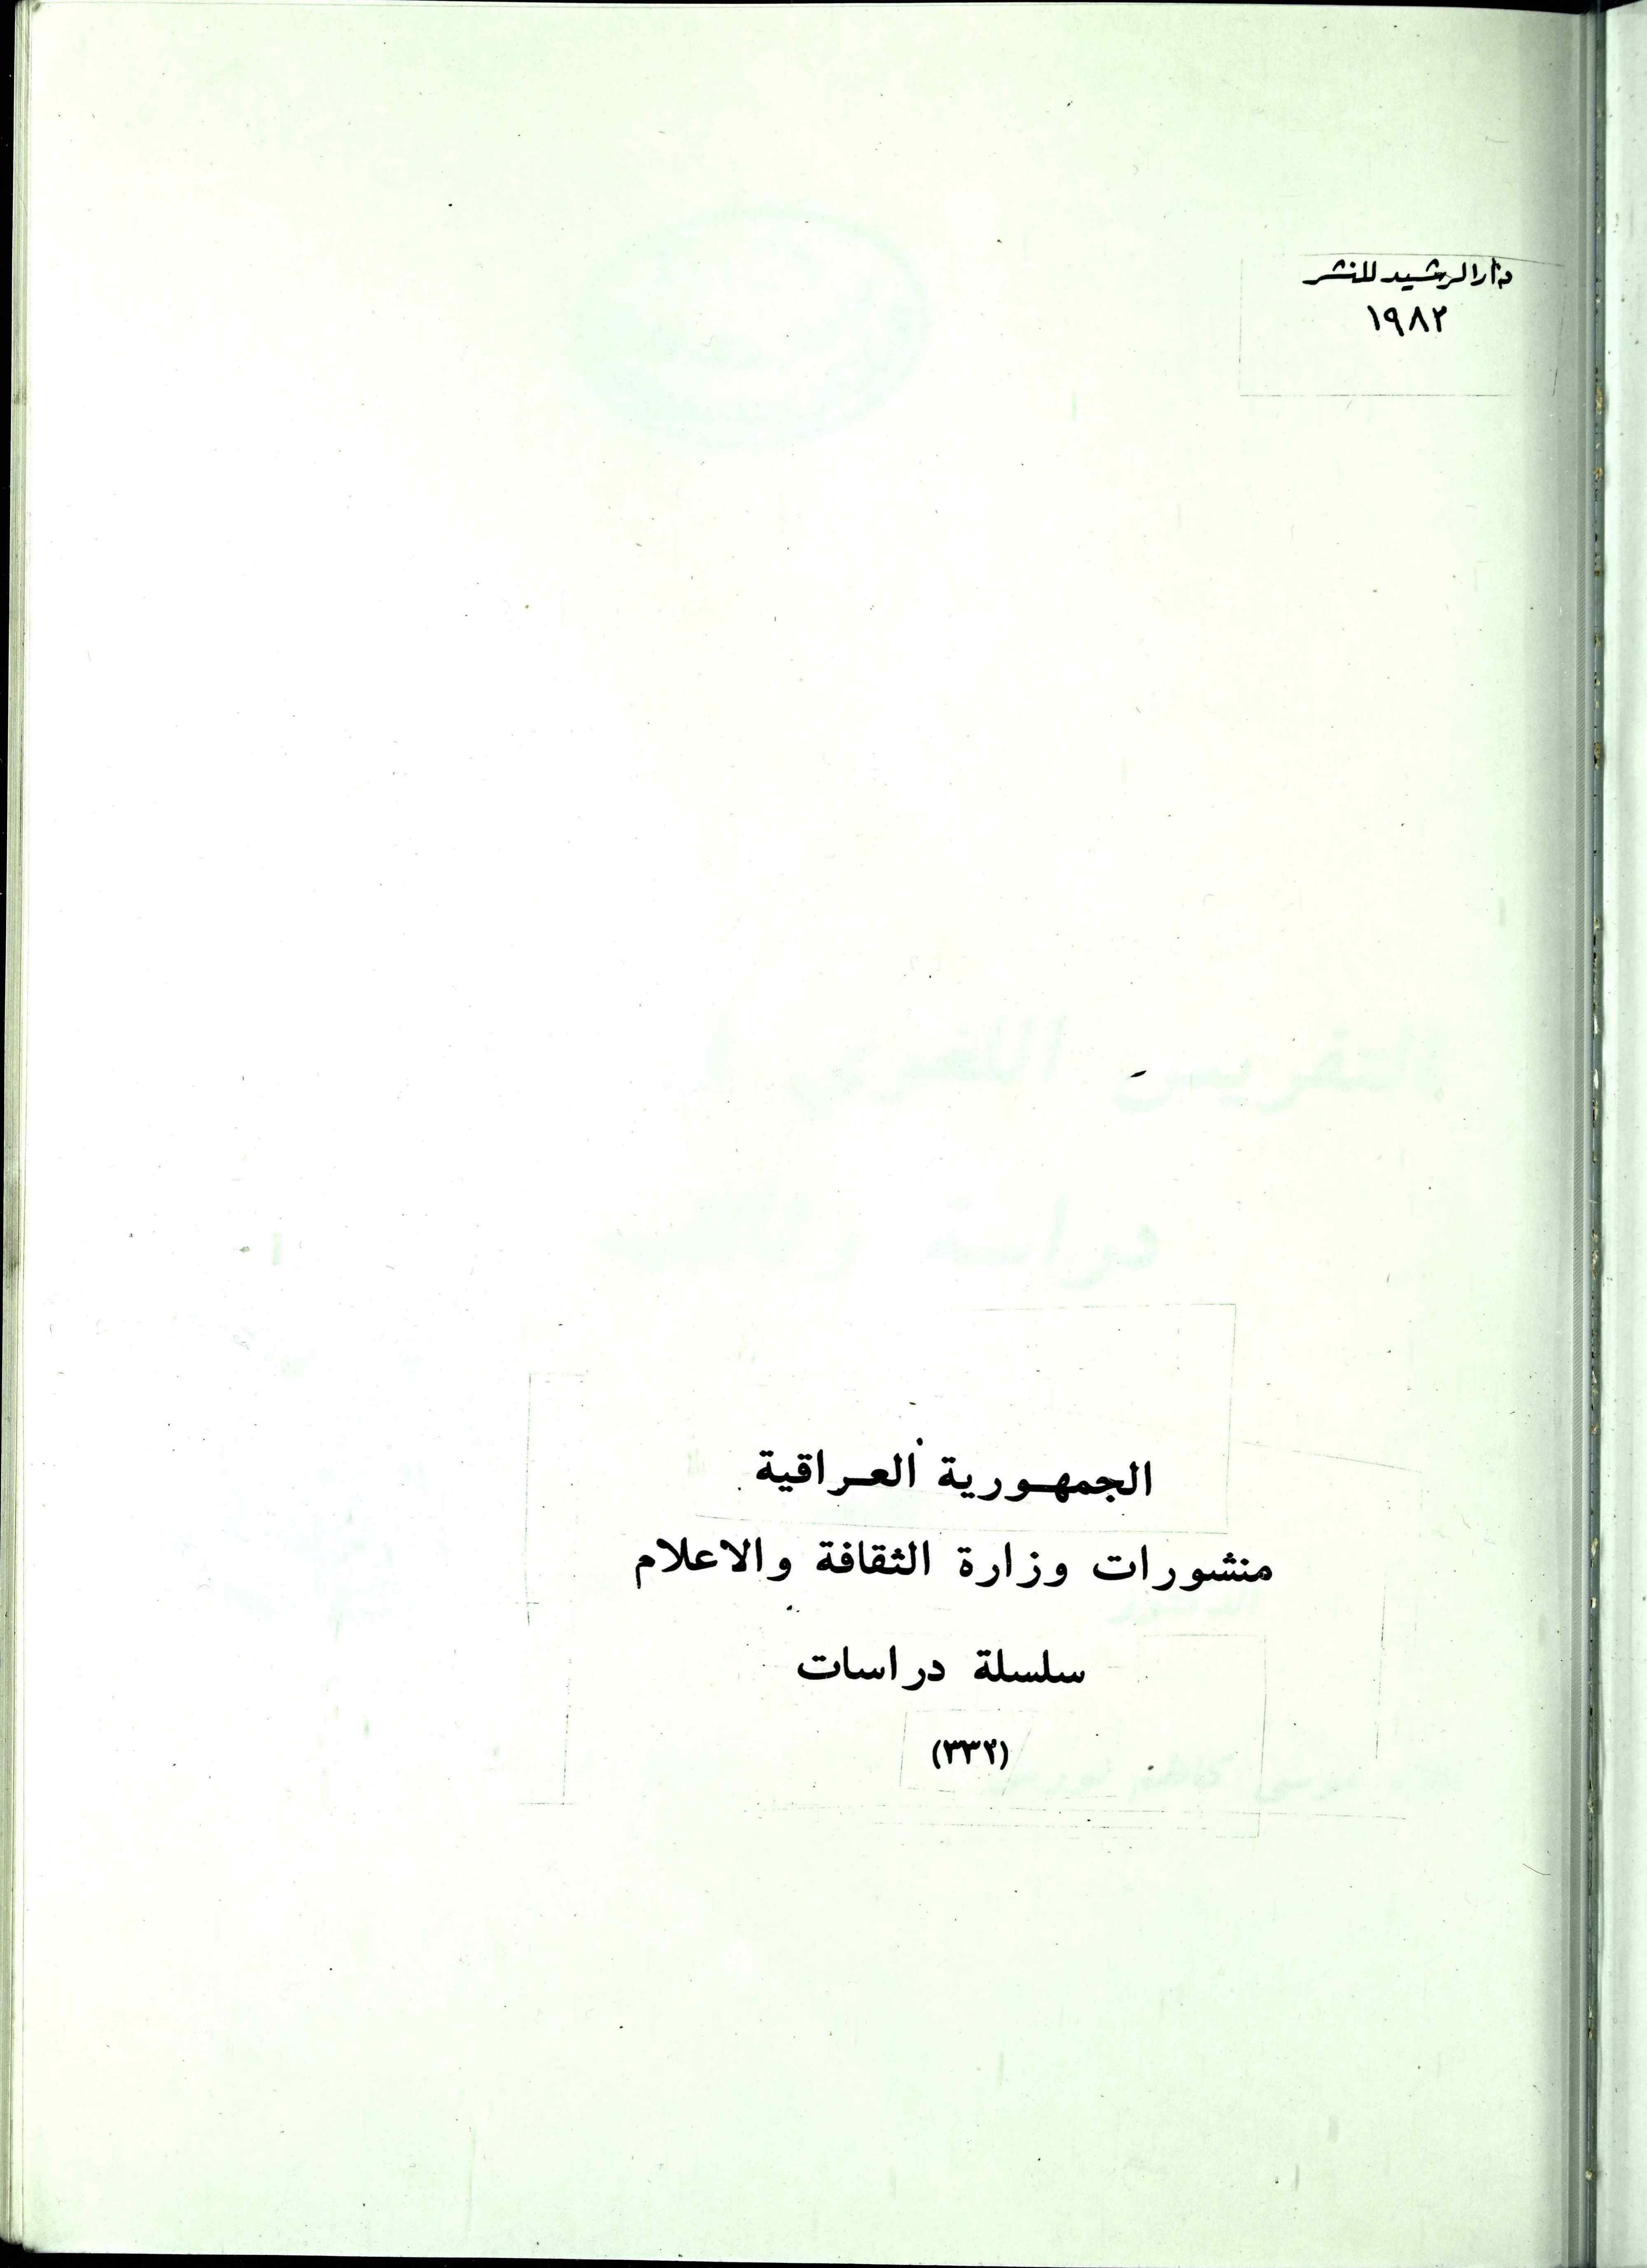 دار الرشيد للنشر
١٩٨٢
الجمهورية العراقية
منشورات وزارة الثقافة والاعلام
سلسلة دراسات
(٣٣٢)